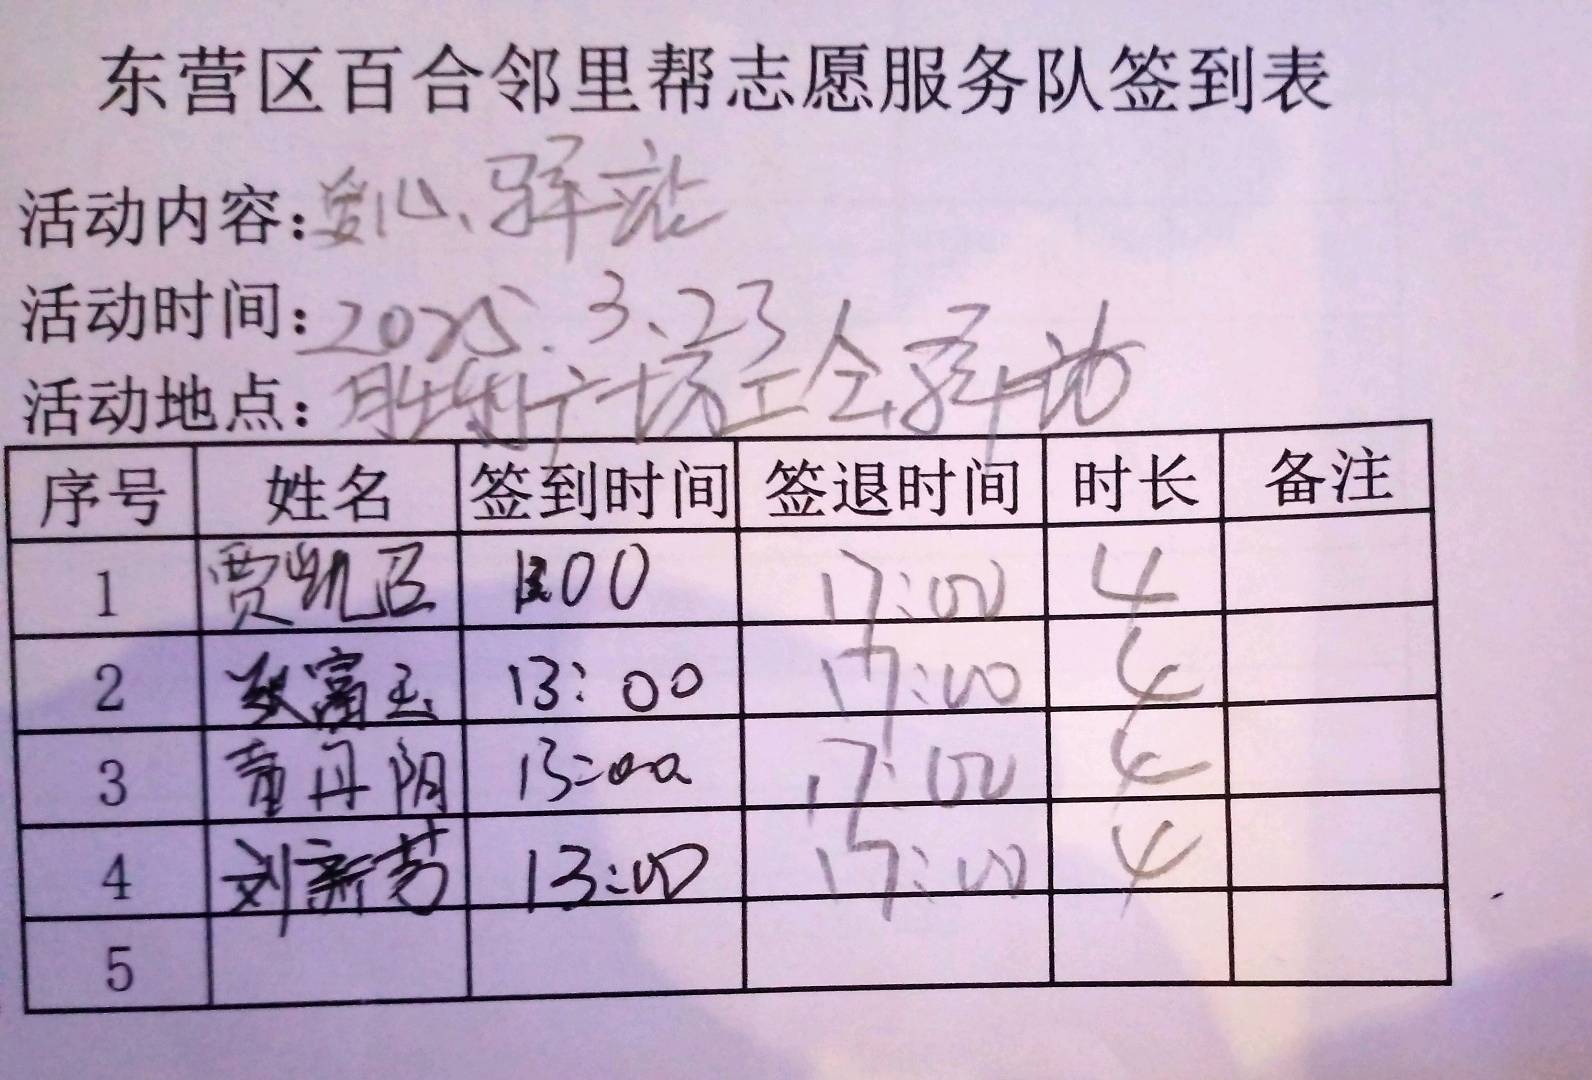 东营区百合邻里帮志愿服务队签到表
活动内容:爱心驿站
活动时间:2025.3.23
活动地点:胜利广场工会驿站
序号 姓名 签到时间 签退时间 时长 备注
1 贾凯 00 17:00 4
2 富玉 13:00 17:00 4
3 董丹阴 13:00 17:00 4
4 刘新芳 13:00 17:00 4
5